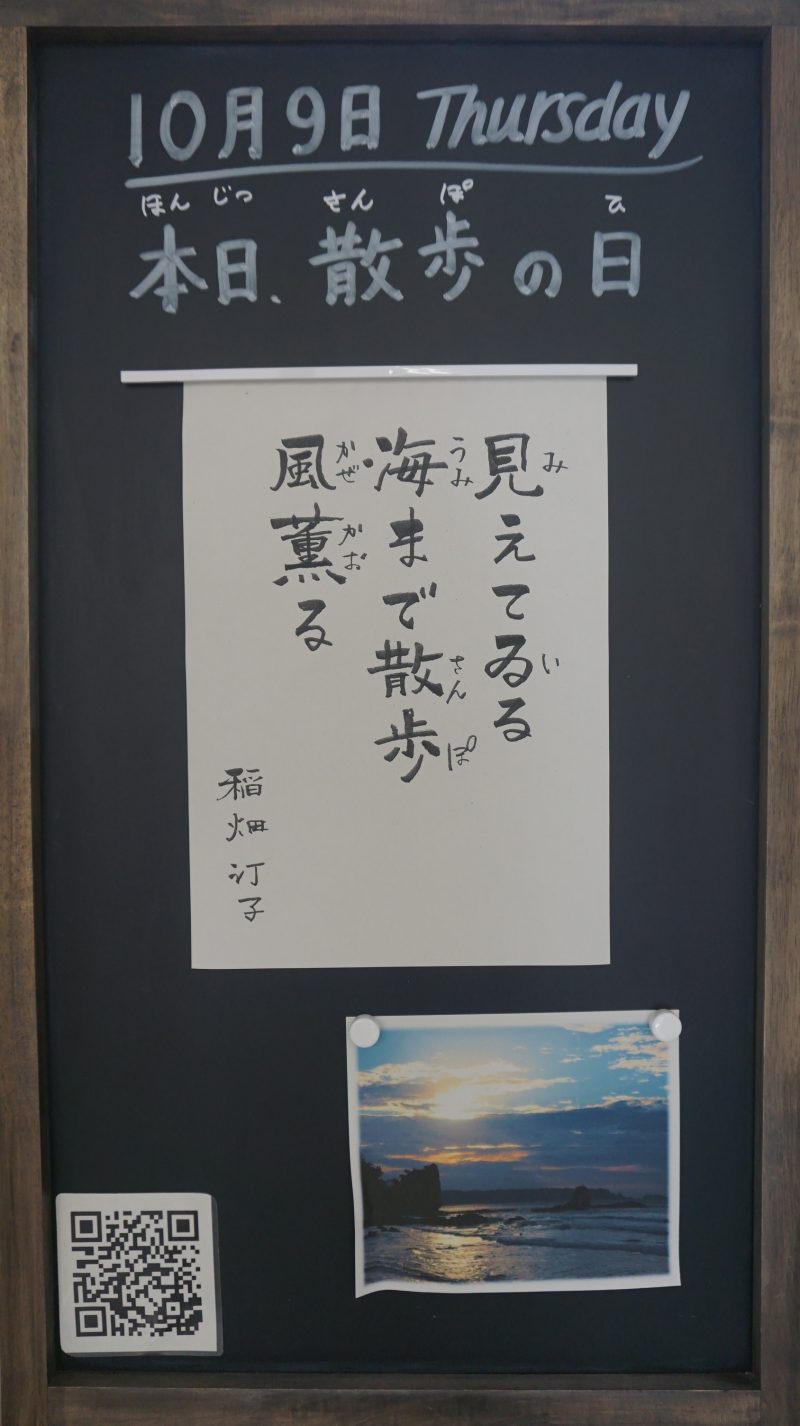 10月9日 Thursday
ほんじつ さんぽ ひ
本日、散歩の日
見えてゐる
み い
海まで散歩
うみ さんぽ
風薫る
かぜ かお
稲畑汀子